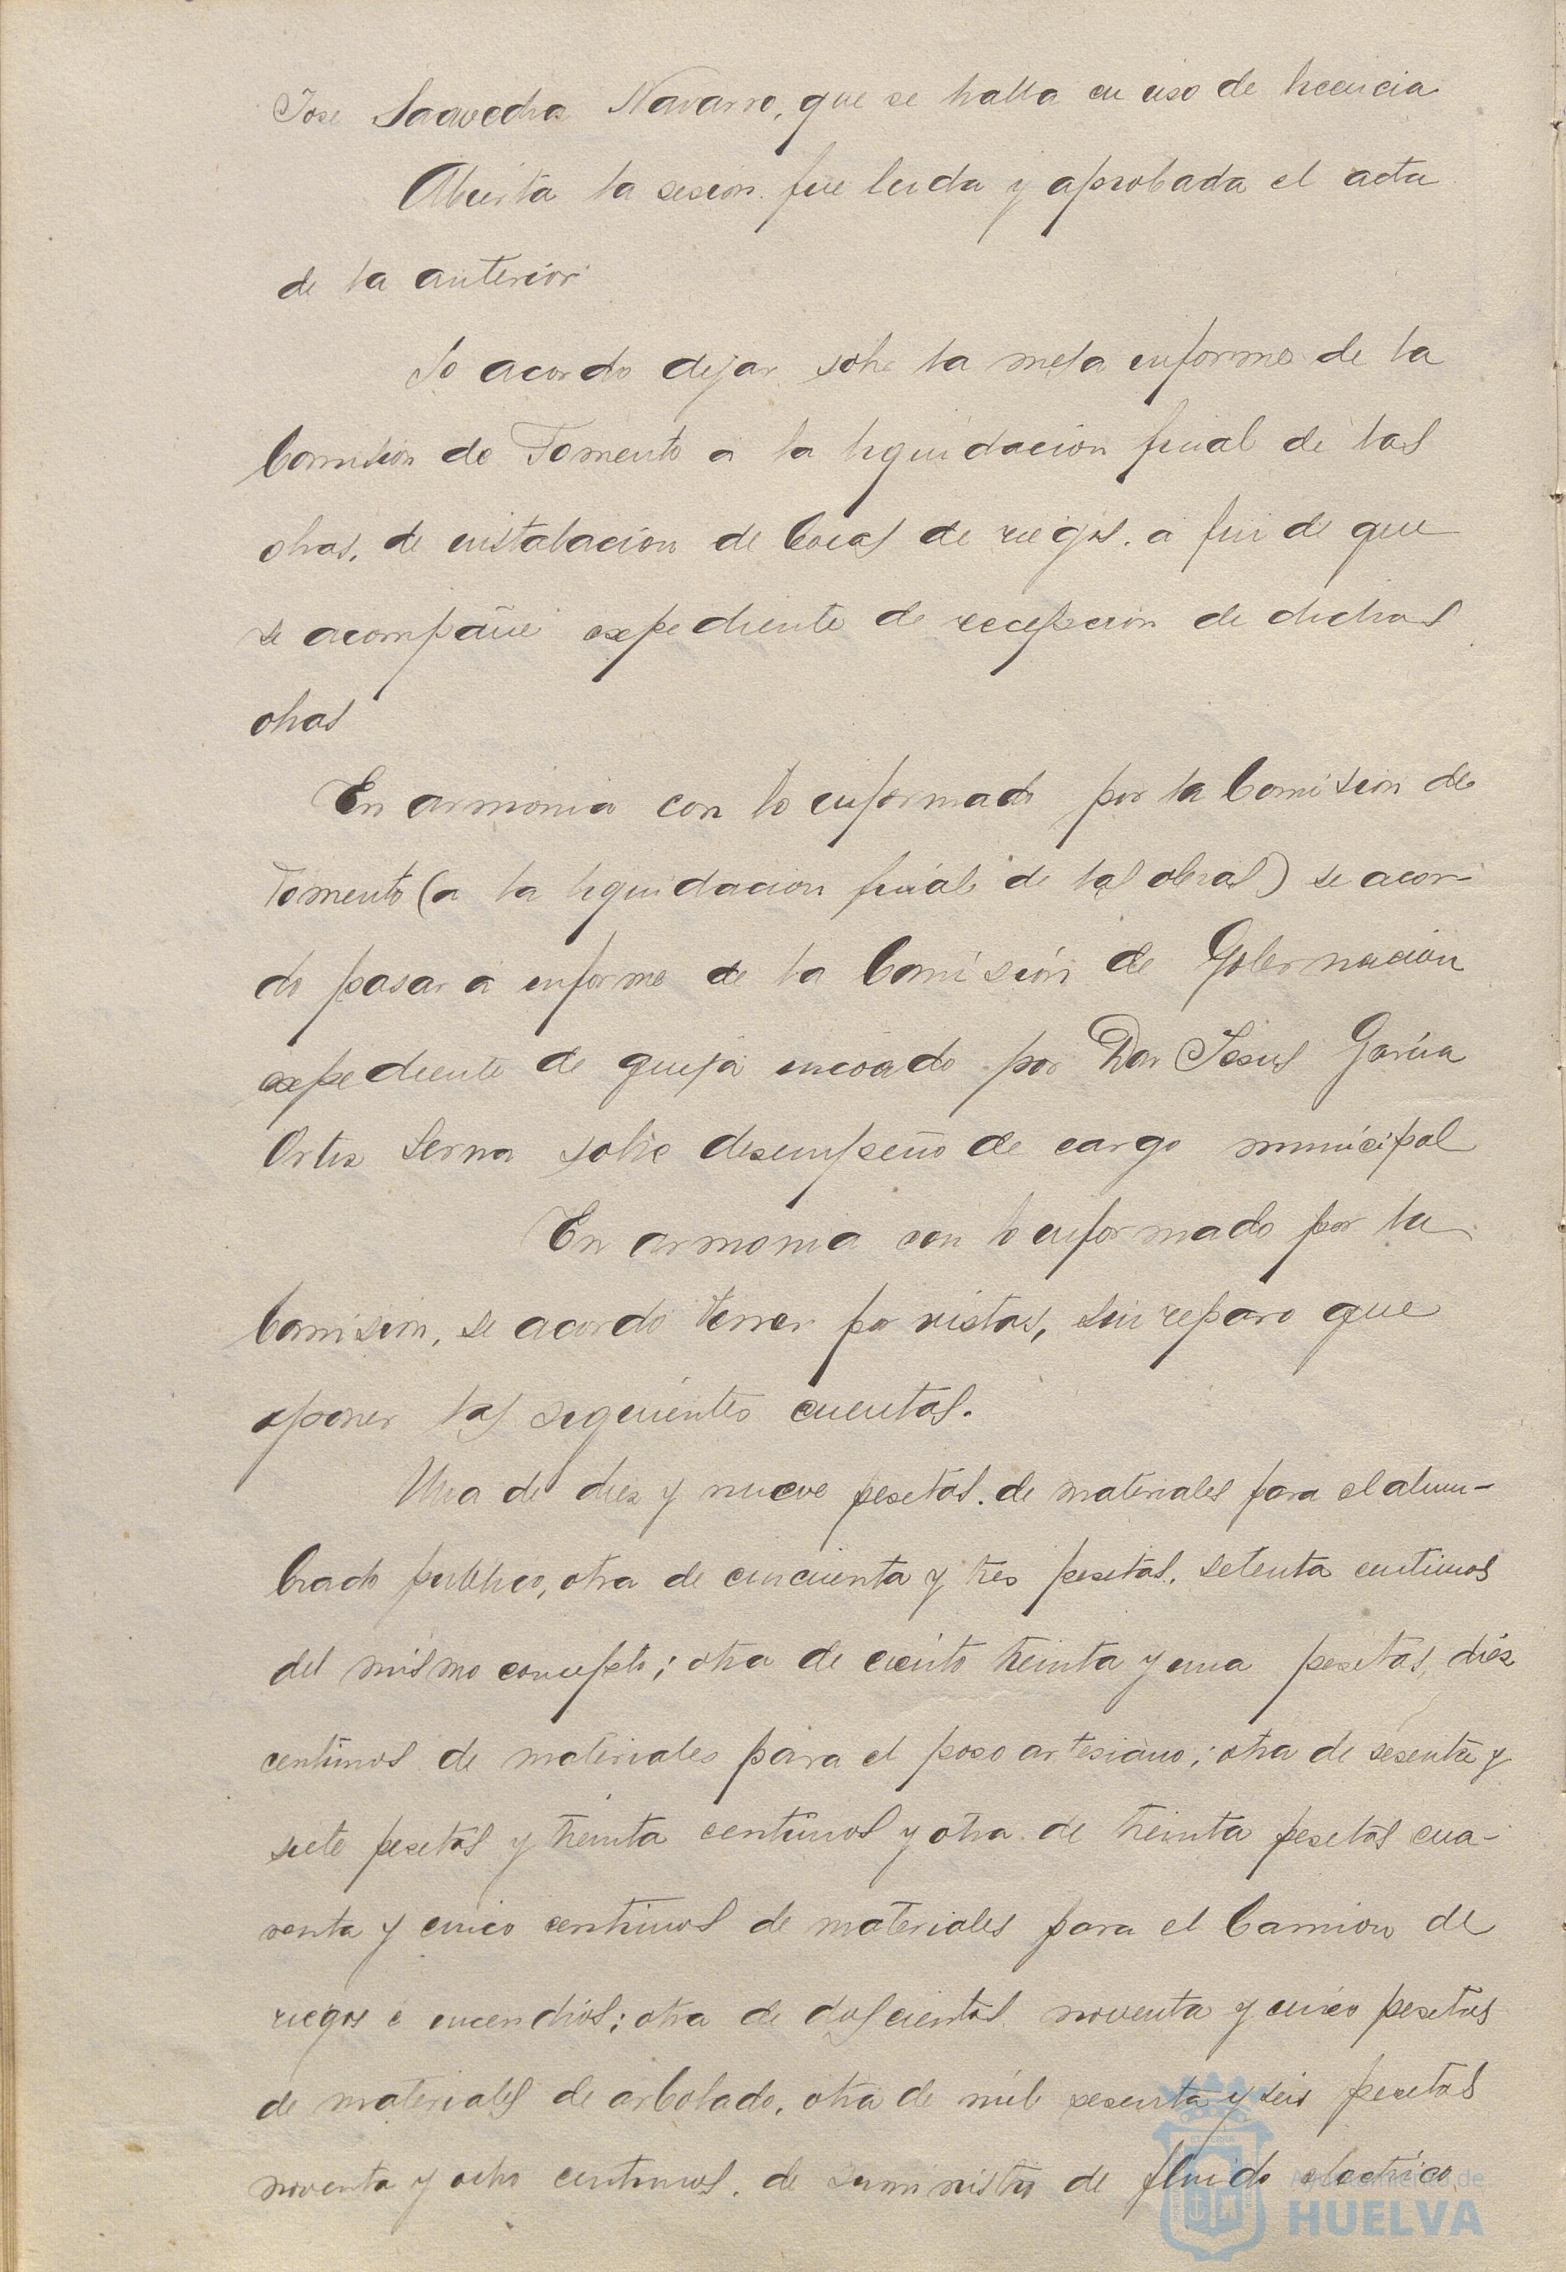 Jose Saavedra Navarro, que se halla en uso de licencia
Abierta la sesion fue leida y aprobada el acta
de la anterior
Se acordo dejar sobre la mesa informe de la
Comision de Fomento a la liquidacion final de las
obras, de instalacion de bocas de riegos. a fin de que
se acompañe expediente de recepcion de dichas
obras
En armonia con lo informado por la Comision de
Fomento (a la liquidacion final de las obras) se acor-
do pasar a informe de la Comisión de Gobernacion
expediente de queja incoado por Don Jesus Garcia
Ortiz Serna sobre desempeño de cargo municipal
En armonia con lo informado por la
Comision, se acordo tener por vistas, sin reparo que
oponer las siguientes cuentas.
Una de diez y nueve pesetas. de materiales para el alum-
brado publico, otra de cincuenta y tres pesetas, setenta centimos
del mismo concepto; otra de ciento treinta y una pesetas, diez
centimos de materiales para el poso artesiano; otra de sesenta y
siete pesetas y treinta centimos y otra de treinta pesetas cua-
renta y cinco centimos de materiales para el Camion de
riegos e incendios; otra de doscientas noventa y cinco pesetas
de materiales de arbolado, otra de mil sesenta y seis pesetas
noventa y ocho centimos, de suministro de fluido electrico
Ayuntamiento de
HUELVA